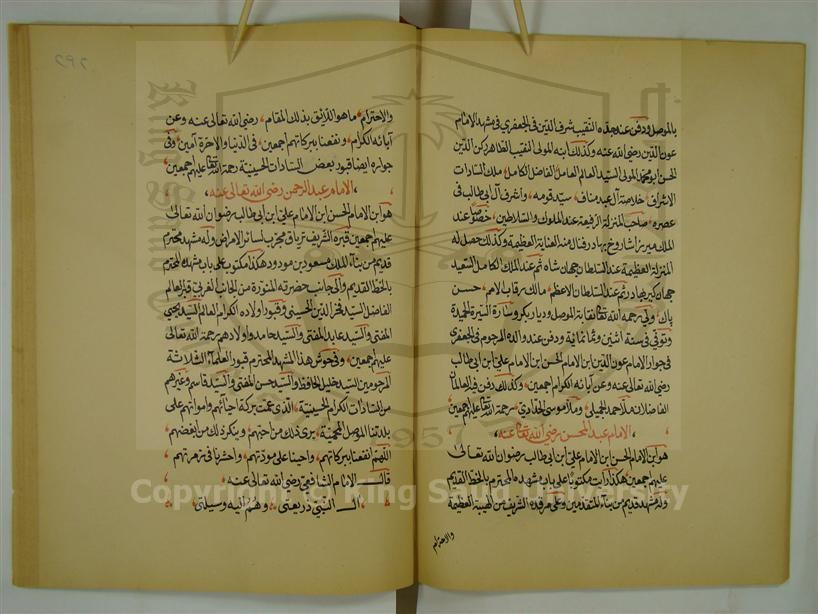 بالموصل ودفن عند جده النقيب شرف الدين في الجعفري في مشهد الامام
عون الدين رضي الله عنه وكذلك ابنه المولى النقيب الظاهر ركن الدين
الحسن ابو محمد المولى السيد العالم العامل الفاضل الكامل ملك السادات
الاشراف خلاصة آل عبد مناف سيد قومه وأشرف آل ابي طالب في
عصره صاحب المنزلة الرفيعة عند الملوك والسلاطين خصيصا عند
الملك ميرزا شاروخ بهادر فنال منه العناية العظيمة وكذلك حصل له
المنزلة العظيمة عند السلطان جهان شاه ثم عند الملك الكامل السعيد
جهان كير بهادر ثم عند السلطان الاعظم مالك رقاب الامم حسن
پاك ولي رحمه الله تعالى نقابة الموصل وديار بكر وسار السيرة الحميدة
وتوفي في سنة اثنين وثمانمائة ودفن عند والده المرحوم في الجعفري
في جوار الامام عون الدين ابن الامام الحسن ابن الامام علي ابن ابي طالب
رضي الله تعالى عنه وعن آبائه الكرام اجمعين وكذلك دفن فيه العالمان
الفاضلان ملا احمد الجميلي وملا موسى الحدادي رحمة الله تعالى عليهم اجمعين
الامام عبد المحسن رضي الله تعالى عنه
هو ابن الامام الحسن ابن الامام علي ابن ابي طالب رضوان الله تعالى
عليهم اجمعين هكذا رأيت مكتوبا على باب مشهده المحترم بالخط القديم
وله مشهد قديم من بناء المتقدمين وعلى مرقده الشريف من الهيبة العظيمة
والاحترام
٢٩٢
والاحترام ما هو اللائق بذلك المقام رضي الله تعالى عنه وعن
آبائه الكرام ونفعنا ببركاتهم اجمعين في الدنيا والآخرة آمين وفي
جواره ايضا قبور بعض السادات الحسينية رحمة الله تعالى عليهم اجمعين
الامام عبد الرحمن رضي الله تعالى عنه
هو ابن الامام الحسن ابن الامام علي ابن ابي طالب رضوان الله تعالى
عليهم اجمعين قبره الشريف ترياق مجرب لسائر الامراض وله مشهد محترم
قديم من بناء الملك مسعود بن مودود هكذا مكتوب على باب مشهده المحترم
بالخط القديم والى جانب حضرته المنورة من الجانب الغربي قبر العالم
الفاضل السيد فخر الدين الحسيني وقبور اولاده الكرام العالم السيد يحيى
المفتي والسيد عابد المفتي والسيد حامد واولادهم رحمة الله تعالى
عليهم اجمعين وفي حوش هذا المشهد المحترم قبور العلماء الثلاثة
المرحومين السيد خليل الحافظ والسيد حسن المفتي والسيد قاسم وغيرهم
من السادات الكرام الحسينية الذي عمت بركة احيائهم وامواتهم على
بلدتنا الموصل المحمية يرى ذلك من احبهم وينكر ذلك من ابغضهم
اللهم انفعنا ببركاتهم واحينا على مودتهم واحشرنا في زمرتهم
قال الامام الشافعي رضي الله تعالى عنه
آل النبي ذريعتي وهم اليه وسيلتي
Copyright © King Saud University
1957